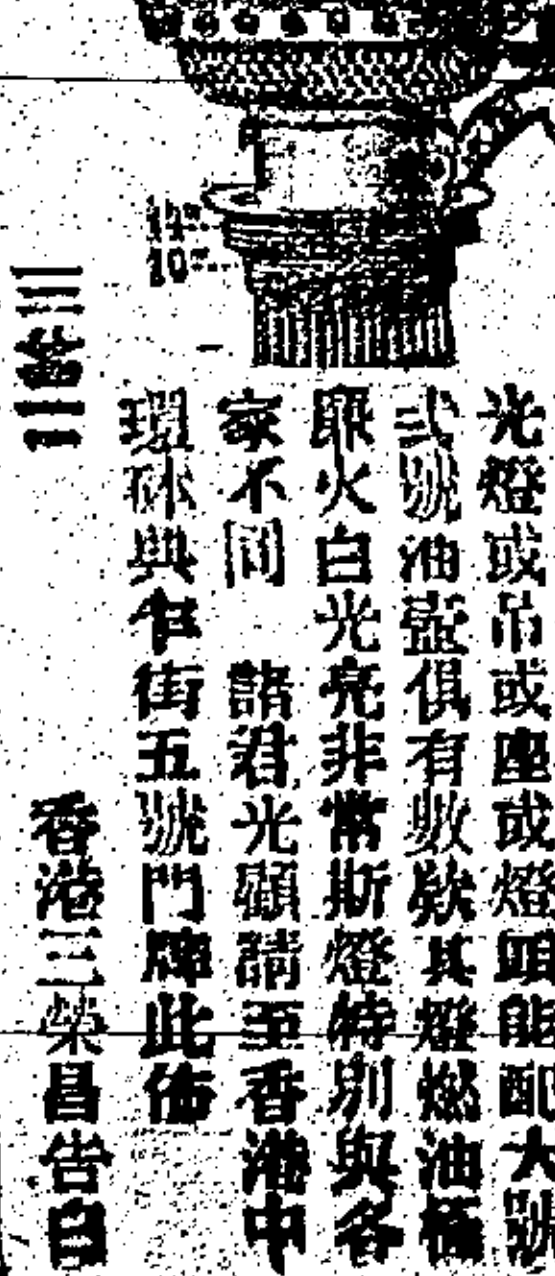 光燈或吊或座或燈頭能配大號
弍號油壼俱有數欵其燈燃油極
火白光亮非常斯燈特別與各
家不同 諸君光顧請至香港中
環砵典乍街五號門牌此佈
香港三榮昌告白
14
20